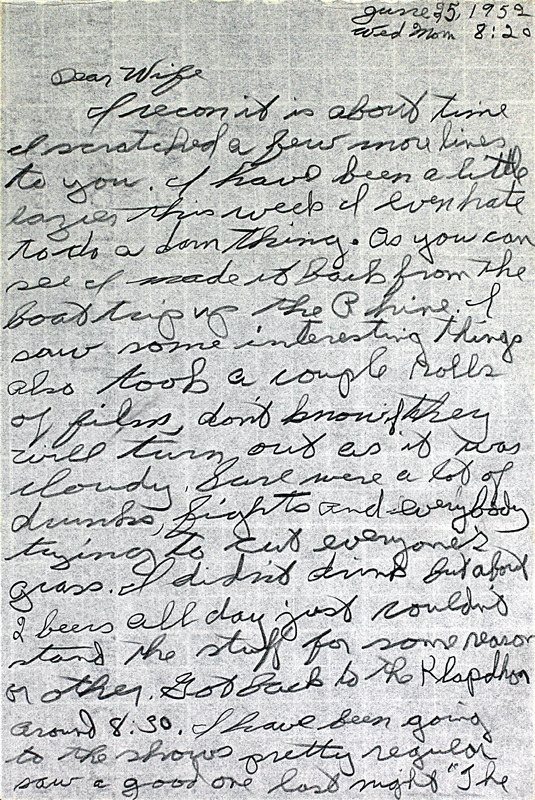 June 25, 1952
Wed Morn 8:20
Dear Wife
I recon it is about time
I scratched a few more lines
to you. I have been a little
lazier this week I even hate
to do a dam thing. As you can
see I made it back from the
boat trip up the Rhine. I
saw some interesting things
also took a couple rolls
of film, don't know if they
will turn out as it was
cloudy. Sure were a lot of
drunks, fights and everybody
trying to cut everyone's
grass. I didn't drink but about
2 beers all day just couldn't
stand the stuff for some reason
or other. Got back to the
around 8:30. I have been going
to the shows pretty regular
saw a good one last night "The